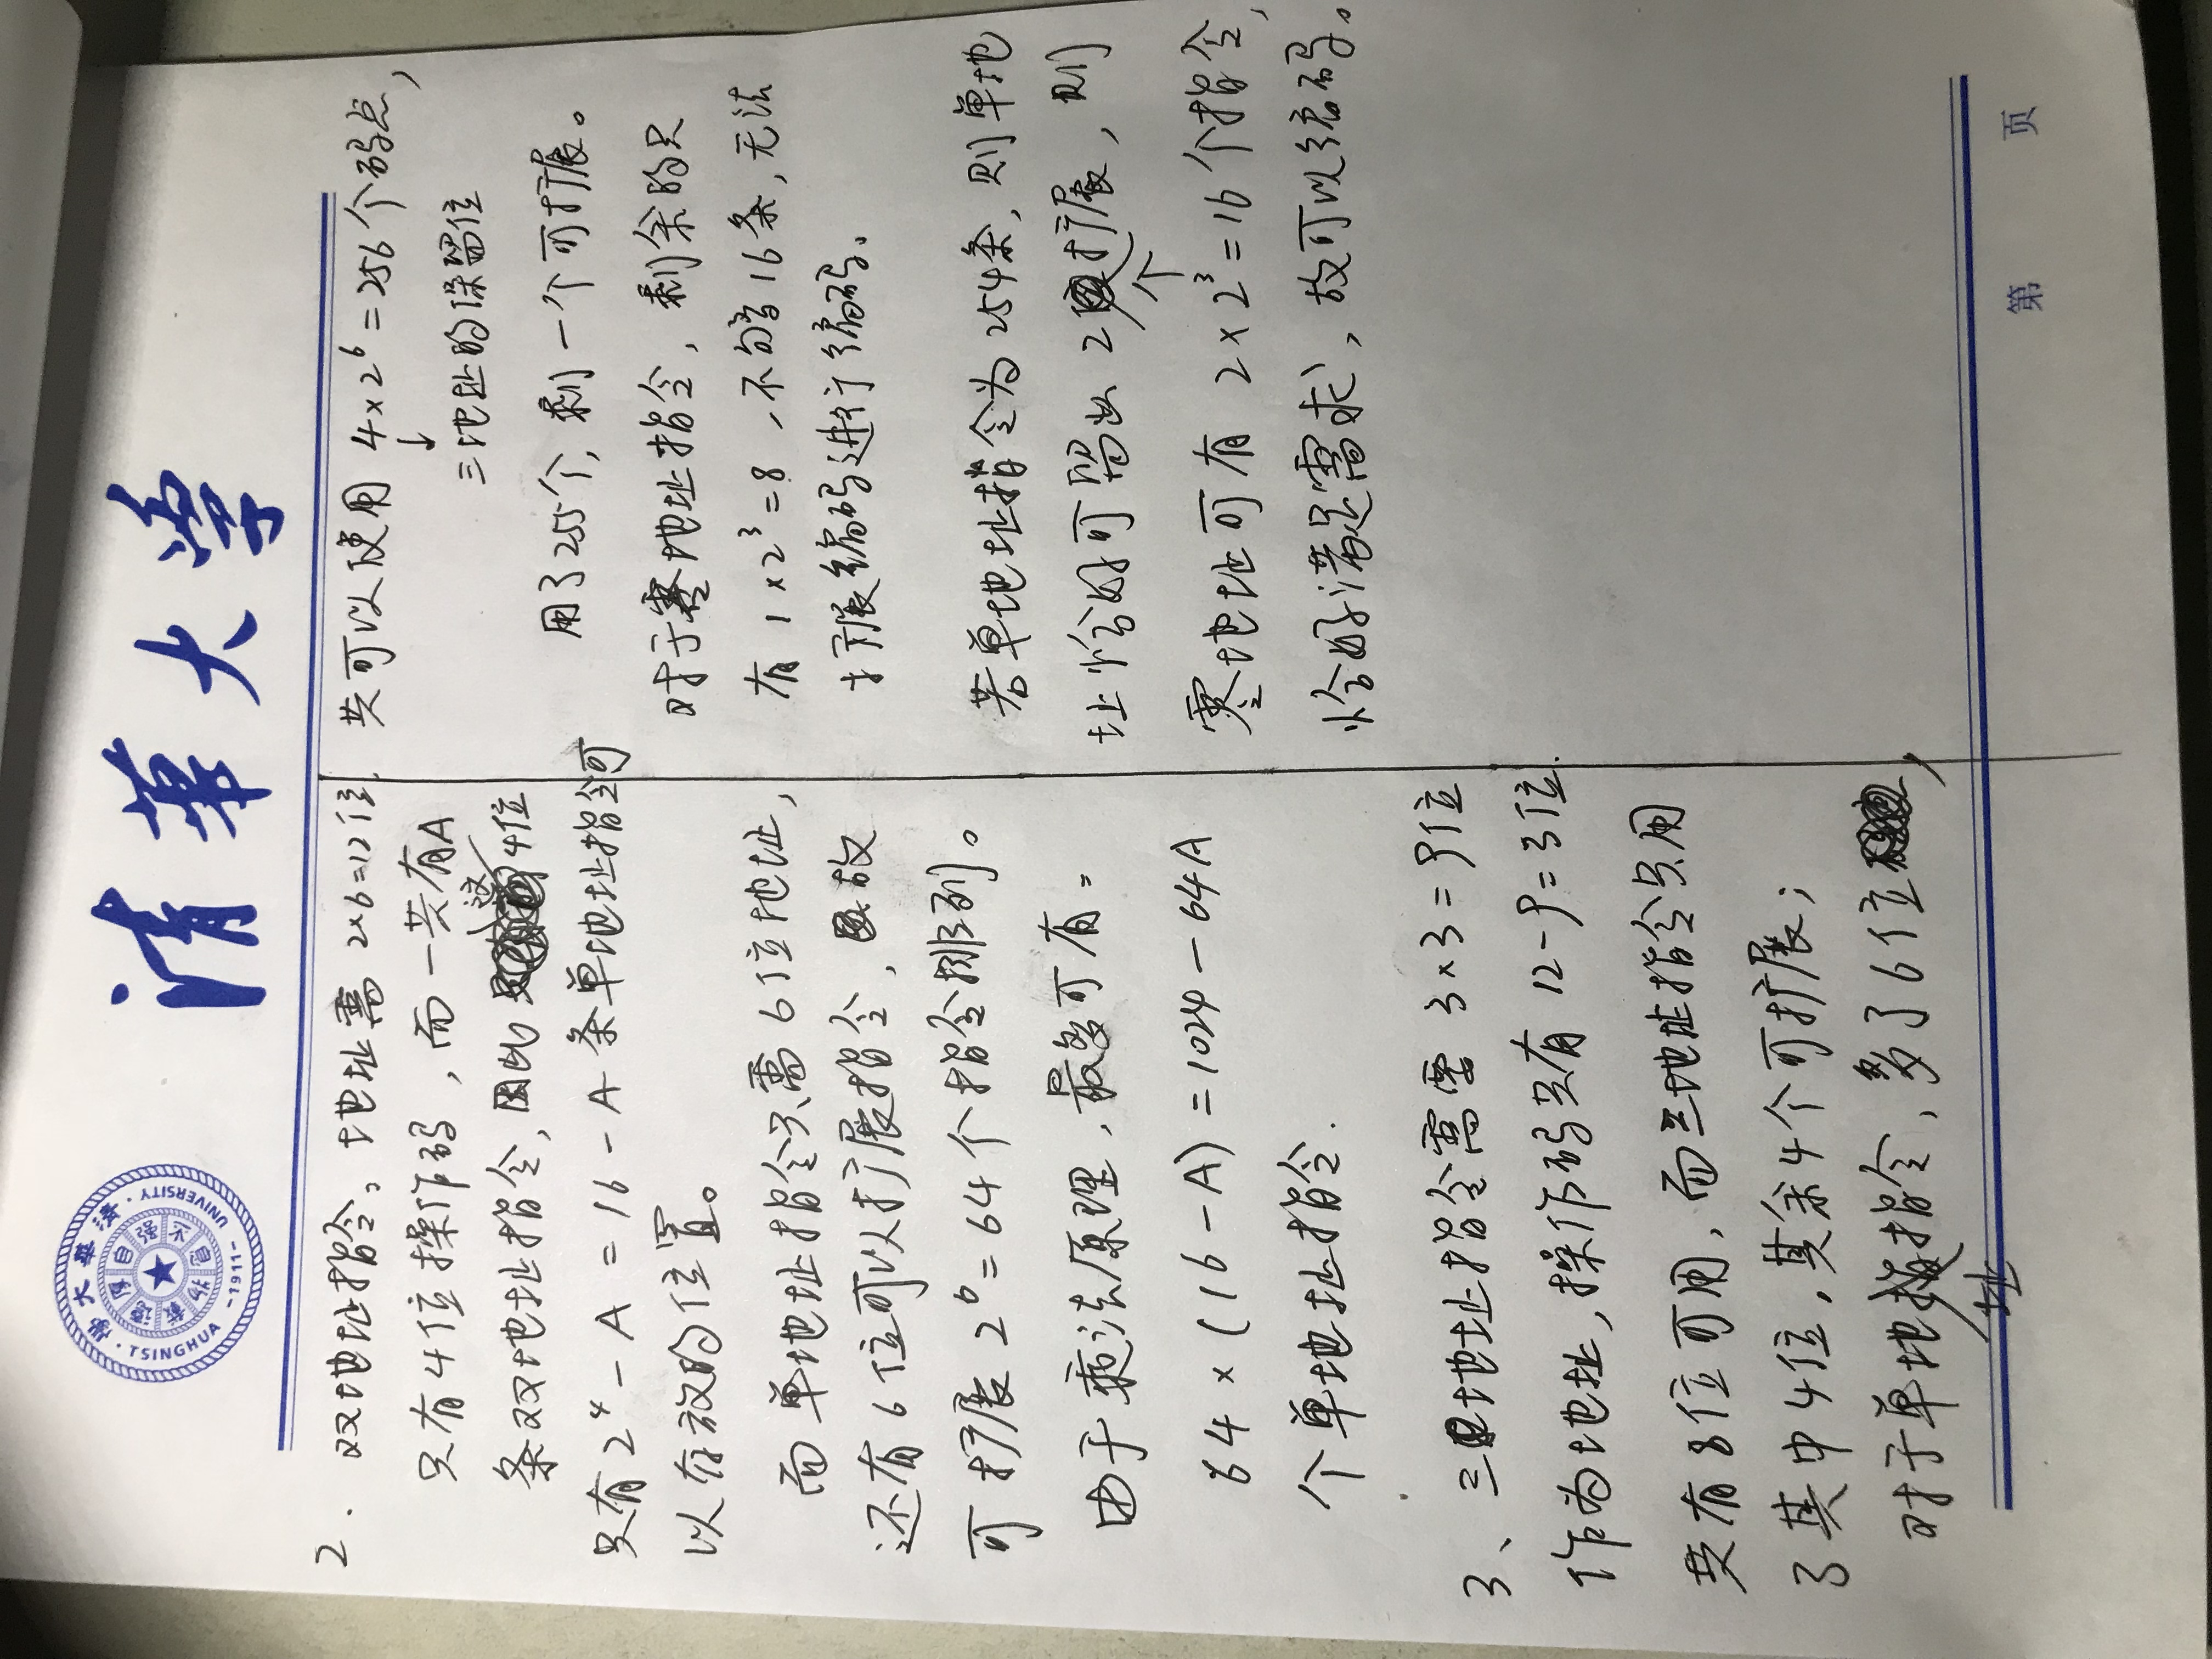 清華大学
TSINGHUA UNIVERSITY
-1911-
2. 双地址指令。地址需 2×6=12位,
只有4位操作码,而一共有A
条双地址指令,因此这4位
只有 2⁴-A = 16-A 条单地址指令可
以存放的位置。
而单地址指令只需6位地址,
还有6位可以扩展指令,故
可扩展 2⁶=64个指令排列。
由于乘法原理,最多可有。
64×(16-A)=1024-64A
个单地址指令.
3、三地址指令需要 3×3=9位
作为地址,操作码只有 12-9=3位.
共有8位可用,而三地址指令只用
了其中4位。其余4个可扩展;
对于单地址指令,多了6位,
共可以使用 4×2⁶=256个码点,
↓
三地址的保留位
用了255个,剩一个可扩展。
对于零地址指令,剩余的只
有 1×2³=8,不够16条,无法
扩展编码进行编码。
若单地址指令为254条,则单地
址恰好可留出2个扩展,则
零地址可有 2×2³=16个指令,
恰好满足需求,故可以编码。
第 页